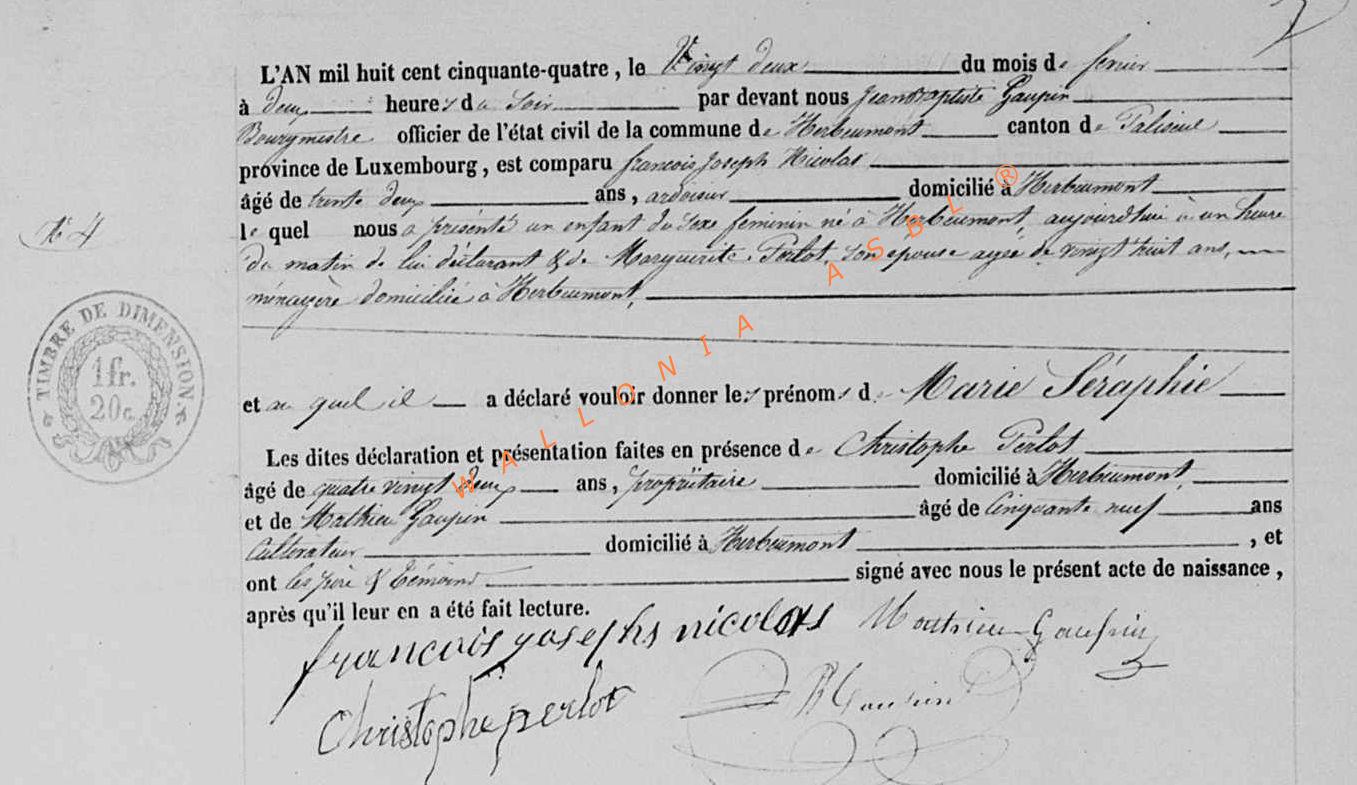 L'AN mil huit cent cinquante-quatre, le Vingt deux du mois de fevrier
à deux heures du Soir par devant nous Jean Baptiste Gaupin
Bourgmestre officier de l'état civil de la commune de Herbeumont canton de Paliseul
province de Luxembourg, est comparu francois Joseph Nicolas
âgé de trente deux ans, ardoisier domicilié à Herbeumont
N° 4
le quel nous a présenté un enfant du sexe feminin né à Herbeumont, aujourdhui à un heure
du matin de lui déclarant & de Marguerite Perlot, son épouse agée de vingt huit ans,
ménagère domiciliée à Herbeumont,
TIMBRE DE DIMENSION
1 fr.
20 c.
et au quel il a déclaré vouloir donner les prénoms de Marie Séraphie
Les dites déclaration et présentation faites en présence de Christophe Perlot
âgé de quatre vingt deux ans, propriétaire domicilié à Herbeumont,
et de Mathieu Gaupin âgé de Cinquante neuf ans
Cultivateur domicilié à Herbeumont, et
ont les père & témoins signé avec nous le présent acte de naissance,
après qu'il leur en a été fait lecture.
françois yosephs nicolas Mathieu Gaupin
Christophe perlot Gaupin
WALLONIA ASBL ®